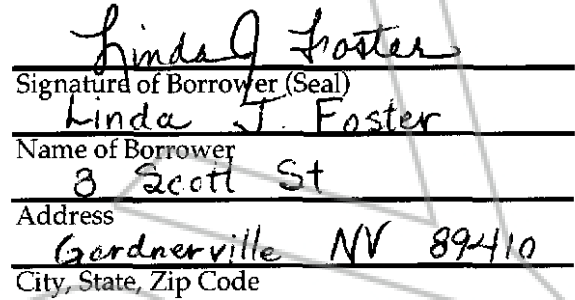 Linda J Foster
Signature of Borrower (Seal)
Linda J. Foster
Name of Borrower
3 Scott St
Address
Gardnerville NV 89410
City, State, Zip Code